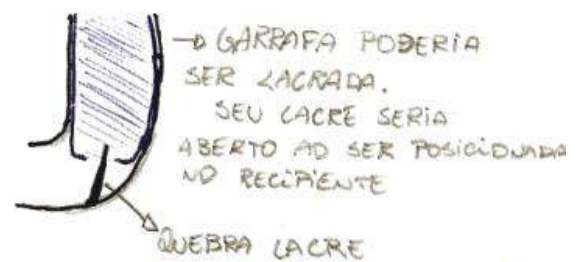 → GARRAFA PODERIA
SER LACRADA.
SEU LACRE SERIA
ABERTO AO SER POSICIONADA
NO RECIPIENTE
QUEBRA LACRE